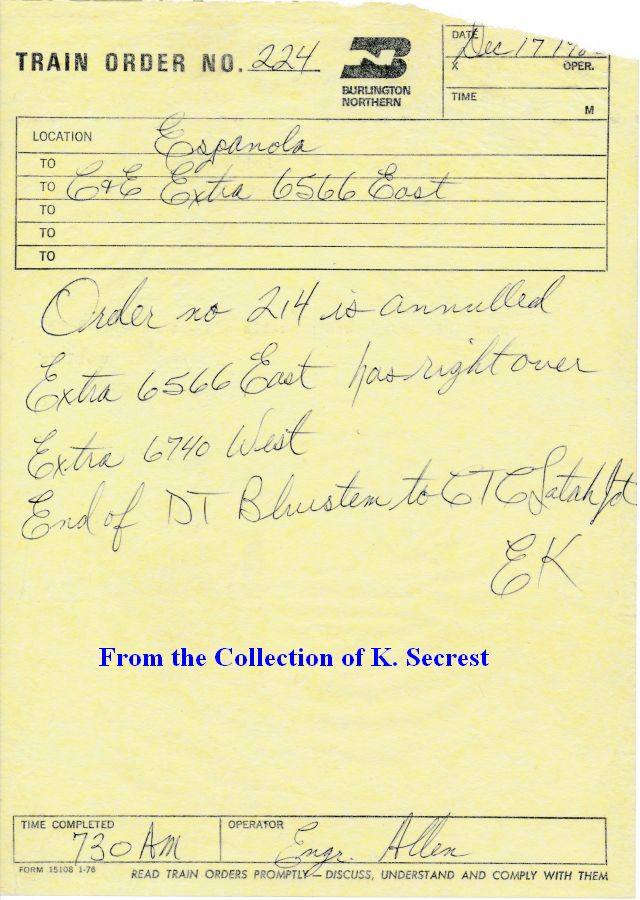 TRAIN ORDER NO. 224
BURLINGTON
NORTHERN
DATE
Dec 17
X OPER.
TIME
M
LOCATION Espanola
TO
TO C&E Extra 6566 East
TO
TO
TO
Order no 214 is annulled
Extra 6566 East has right over
Extra 6740 West
End of DT Bluestem to CTC Latah Jct
EK
From the Collection of K. Secrest
TIME COMPLETED
730 AM
OPERATOR
Engr. Allen
FORM 15108 1-76
READ TRAIN ORDERS PROMPTLY—DISCUSS, UNDERSTAND AND COMPLY WITH THEM